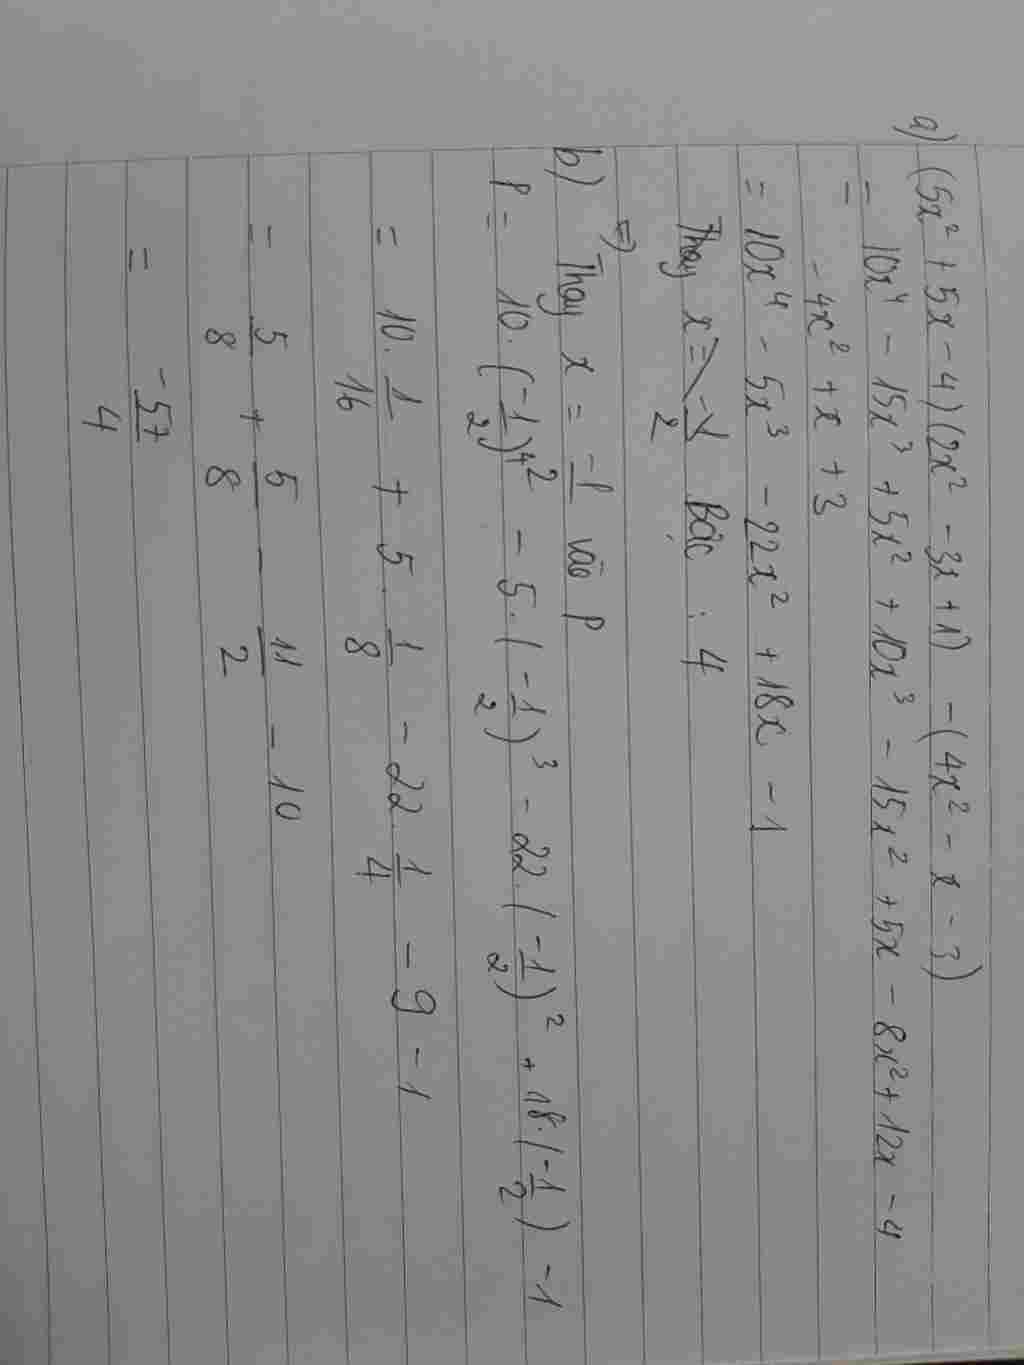 a) (5x² + 5x - 4)(2x² - 3x + 1) - (4x² - x - 3)
= 10x⁴ - 15x³ + 5x² + 10x³ - 15x² + 5x - 8x² + 12x - 4
- 4x² + x + 3
= 10x⁴ - 5x³ - 22x² + 18x - 1
Thay x = -1/2 Bậc : 4
=)
b) Thay x = -1/2 vào P
P = 10.(-1/2)⁴ - 5.(-1/2)³ - 22.(-1/2)² + 18.(-1/2) - 1
= 10.1/16 + 5.1/8 - 22.1/4 - 9 - 1
= 5/8 + 5/8 - 11/2 - 10
= -57/4